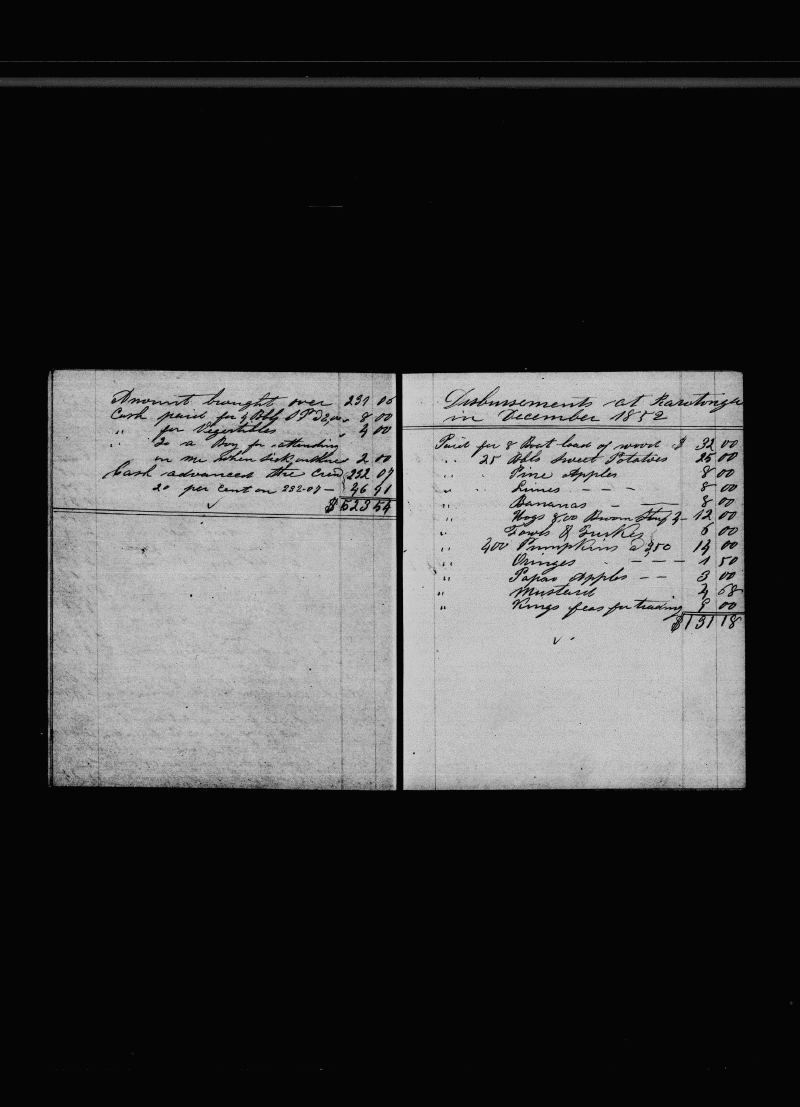 Amount brought over 237 06
Cash paid for 4 Bbls S P @ 2,00 " 8 00
" for Vegertables " 4 00
" To a Boy for attending
on me when sick on shore 2 00
Cash advanced the Crew 232 07
20 per cent on 232-07 — 46 41
$ 523 54
Disbursements at Rarotonga
in December 1852
Paid for 8 Boat load of wood $ 32 00
" 25 Bbls Sweet Potatoes 25 00
" " Pine Apples 8 00
" " Limes - - - 8 00
" Bananas - — 8 00
" Hogs 8,00 Broom Stuff 4 - 12 00
" Fowls & Turkey 6 00
" 400 Pumpkins @ 3,50 14 00
" Oringes - - - - 1 50
" Papao Apples - - 3 00
" Mustard 4 68
" Kings feas for trading 9 00
$ 131 18